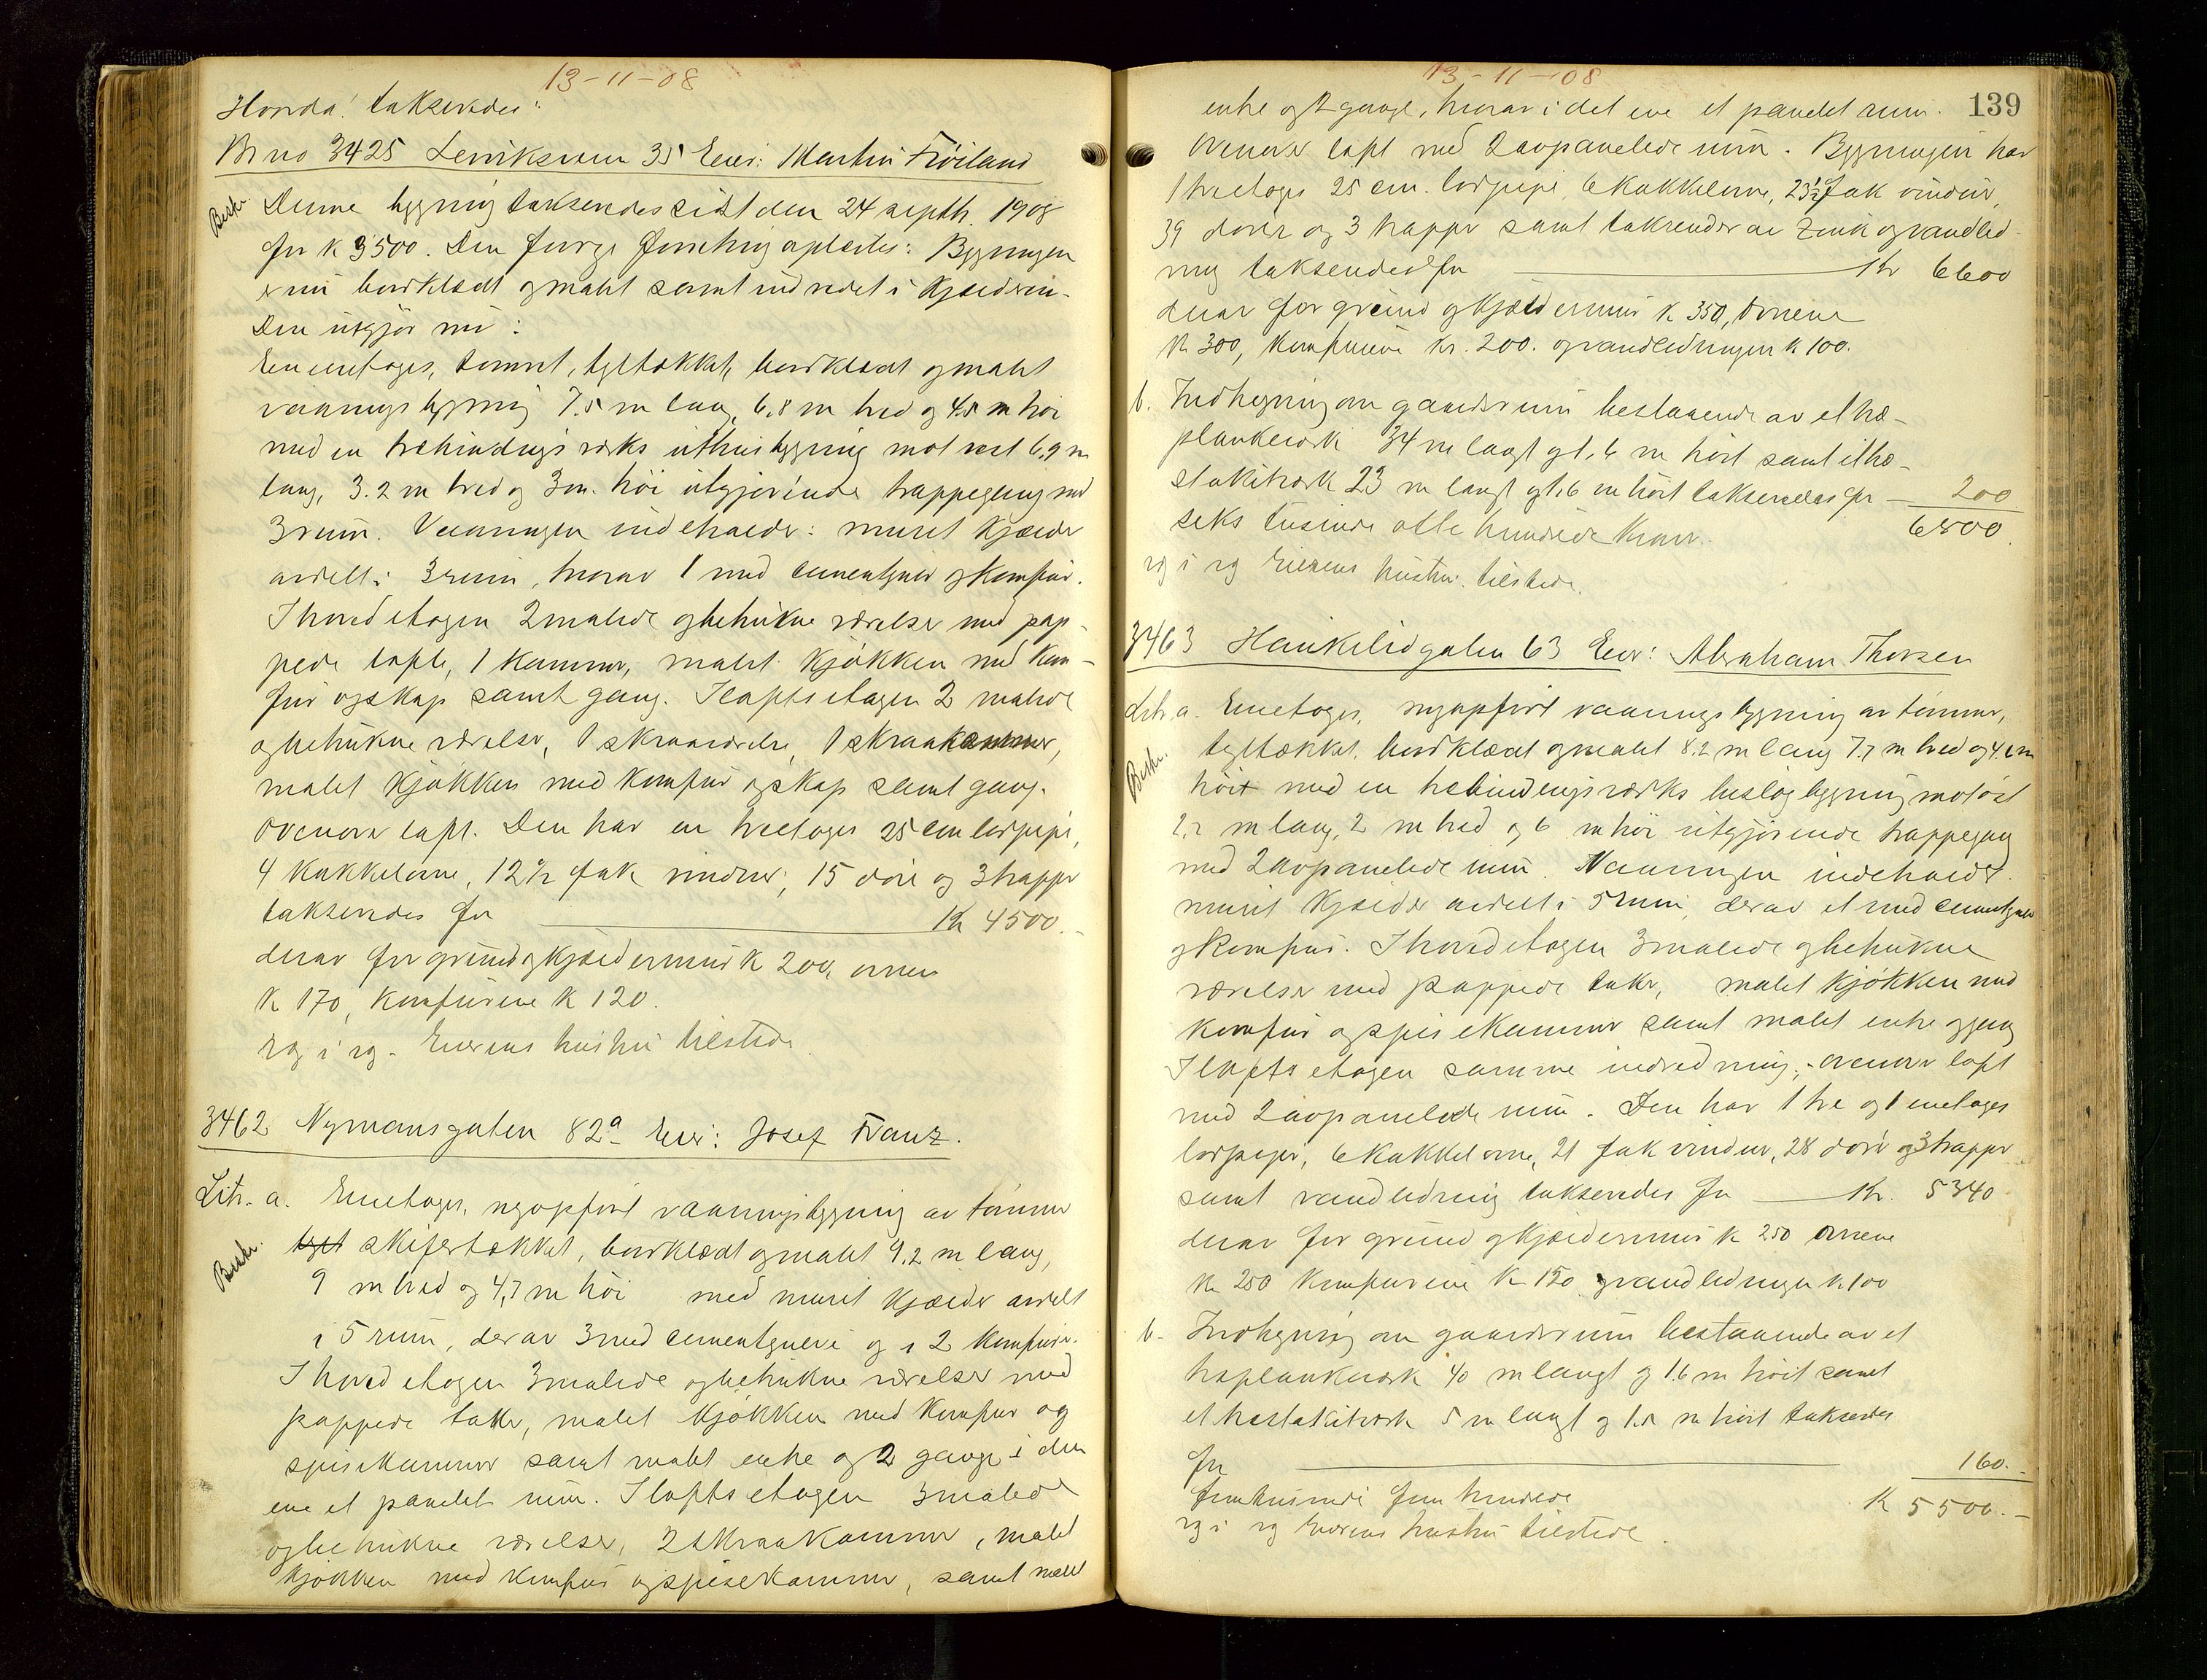 13-11-08
Hvorda! takseredes:
Br no 3425 Leviksveien 35 Eier: Martin Fröiland
Beskr. Denne bygning takseredes sidst den 24 septb. 1908
for k 3500. Den forrige forretning oplæstes: Bygningen
er nu bordklædt og malet samt indredet i kjælderen.
Den utgjör nu:
En enetages, tömret, tegltækket, bordklædt og malet
vaaningsbygning 7.5 m lang, 6,8 m bred og 4.5 m höi
med en trebindingsverks uthusbygning mot vest 6.9 m
lang, 3.2 m bred og 3 m. höi utgjörende trappegang med
3 rum. Vaaningen indeholder: muret kjælder
avdelt i 3 rum, hvorav 1 med cementgulv og komfur.
I hovedetagen 2 malede og betrukne værelser med pap-
pede lofte, 1 kammer, malet kjökken med kom-
fur og skap samt gang. I loftsetagen 2 malede
og betrukne værelser, 1 skraaværelse, 1 skraakammer,
malet kjökken med komfur og skap samt gang.
Ovenover loft. Den har en treetages 25 cm lorpipe,
4 kakkelovne, 12 1/2 fak vinduer, 15 döre og 3 trapper
takseredes for Kr 4500.-
derav for grund og kjældermur k 200, ovnen
k 170, komfurene k 120.
rg i rg. Eierens hustru tilstede.
3462 Nymansgaten 82a Eier: Josef Franz.
Litr. a. Enetages, nyopført vaaningsbygning av tömmer
Beskr. tegl skifertækket, bordklædt og malet 9.2 m lang,
9 m bred og 4,7 m höi med muret kjælder avdelt
i 5 rum, derav 3 med cementgulv og i 2 komfurer.
I hovedetagen 3 malede og betrukne værelser med
pappede takr, malet kjökken med komfur og
spisekammer samt malet entre og 2 gange i den
ene et panelet rum. I loftsetagen 3 malede
og betrukne værelser, 2 skraakammer, malet
kjökken med komfur og spisekammer, samt malet
13-11-08
139
entre og 2 gange, hvorav i det ene et panelet rum.
Ovenover loft med 2 avpanelede rum. Bygningen har
1 treetages 25 cm. lorpipe, 6 kakkelovne, 23 1/2 fak vinduer,
39 dörer og 3 trapper samt takrender av zink og vandled-
ning takseredes for Kr 6600
derav for grund og kjældermur k 350, ovnene
k 300, komfurene kr. 200. og vandledningen k 100.
b. Indhegning om gaardsrum bestaaende av et træ-
plankeverk 34 m langt og 1,6 m höit samt et træ-
stakitverk 23 m langt og 1,6 m höit takseredes for 200
6800.
seks tusinde otte hundrede kroner.
rg i rg Eierens hustru tilstede.
3463 Haukeligaten 63 Eier: Abraham Thorsen
Litr. a. Enetages, nyopfört vaaningsbygning av tömmer,
Beskr. tegltækket, bordklædt og malet 8.2 m lang 7.7 m bred og 4.6 m
höit med en trebindingsverks beslagbygning mot öst
2.2 m lang, 2 m bred og 6 m höi utgjörende trappegang
med 2 avpanelede rum. Vaaningen indeholder
muret kjælder avdelt i 5 rum, derav et med cementgulv
og komfur. I hovedetagen 3 malede og betrukne
værelser med pappede takr, malet kjökken med
komfur og spisekammer samt malet entre og gang
I loftsetagen samme indredning; - ovenover loft
med 2 avpanelede rum. Den har 1 tre og 1 enetages
lorpiper, 6 kakkelovne, 21 fak vinduer, 28 dörer og 3 trapper
samt vandledning takseredes for Kr. 5340
derav for grund og kjældermur k 250 ovnene
kr 250 komfurene k 150 og vandledningen k 100
b. Indhegning om gaardsrum bestaaende av et
træplankeverk 40 m langt og 1.6 m höit samt
et træstakitverk 5 m langt og 1.5 m höit takseredes
for 160.-
femtusinde fem hundrede K 5500.-
rg i rg Eierens hustru tilstede.